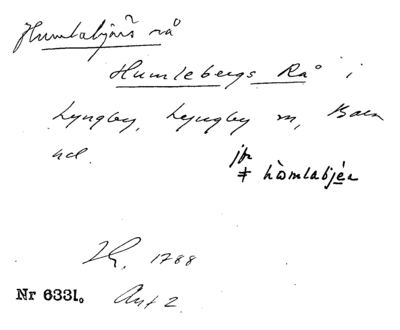 Humlabjärs rå
Humlebergs Rå i
Lyngby, Lyngby sn, Bara
hd.
jfr
‡ hòmlabjéɐ
1788
Nr 6331. Ant 2